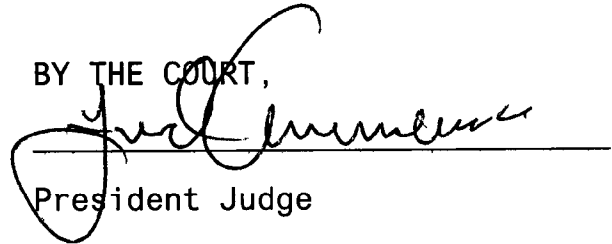 BY THE COURT,
President Judge